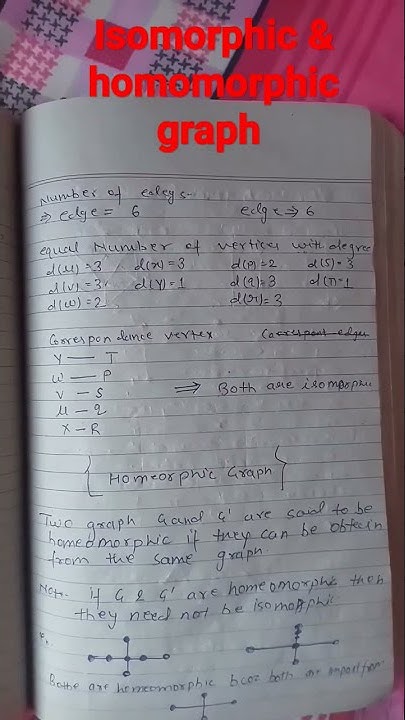 Isomorphic &
homomorphic
graph
Number of edeys-
⇒ edge = 6 edge ⇒ 6
equal Number of vertices with degree
d(u)=3 d(x)=3 d(p)=2 d(S)=3
d(v)=3 d(Y)=1 d(q)=3 d(T)=1
d(w)=2 d(r)=3
Correspondance vertex Correspont edges
Y — T
w — P
v - S ⇒ Both are isomorphic
u - q
X - R
{ Homeorphic Graph }
Two graph G and G' are said to be
homeomorphic if they can be obtain
from the same graph.
Note. if G & G' are homeomorphic then
they need not be isomorphic.
Bothe are homeomorphic bcoz both are